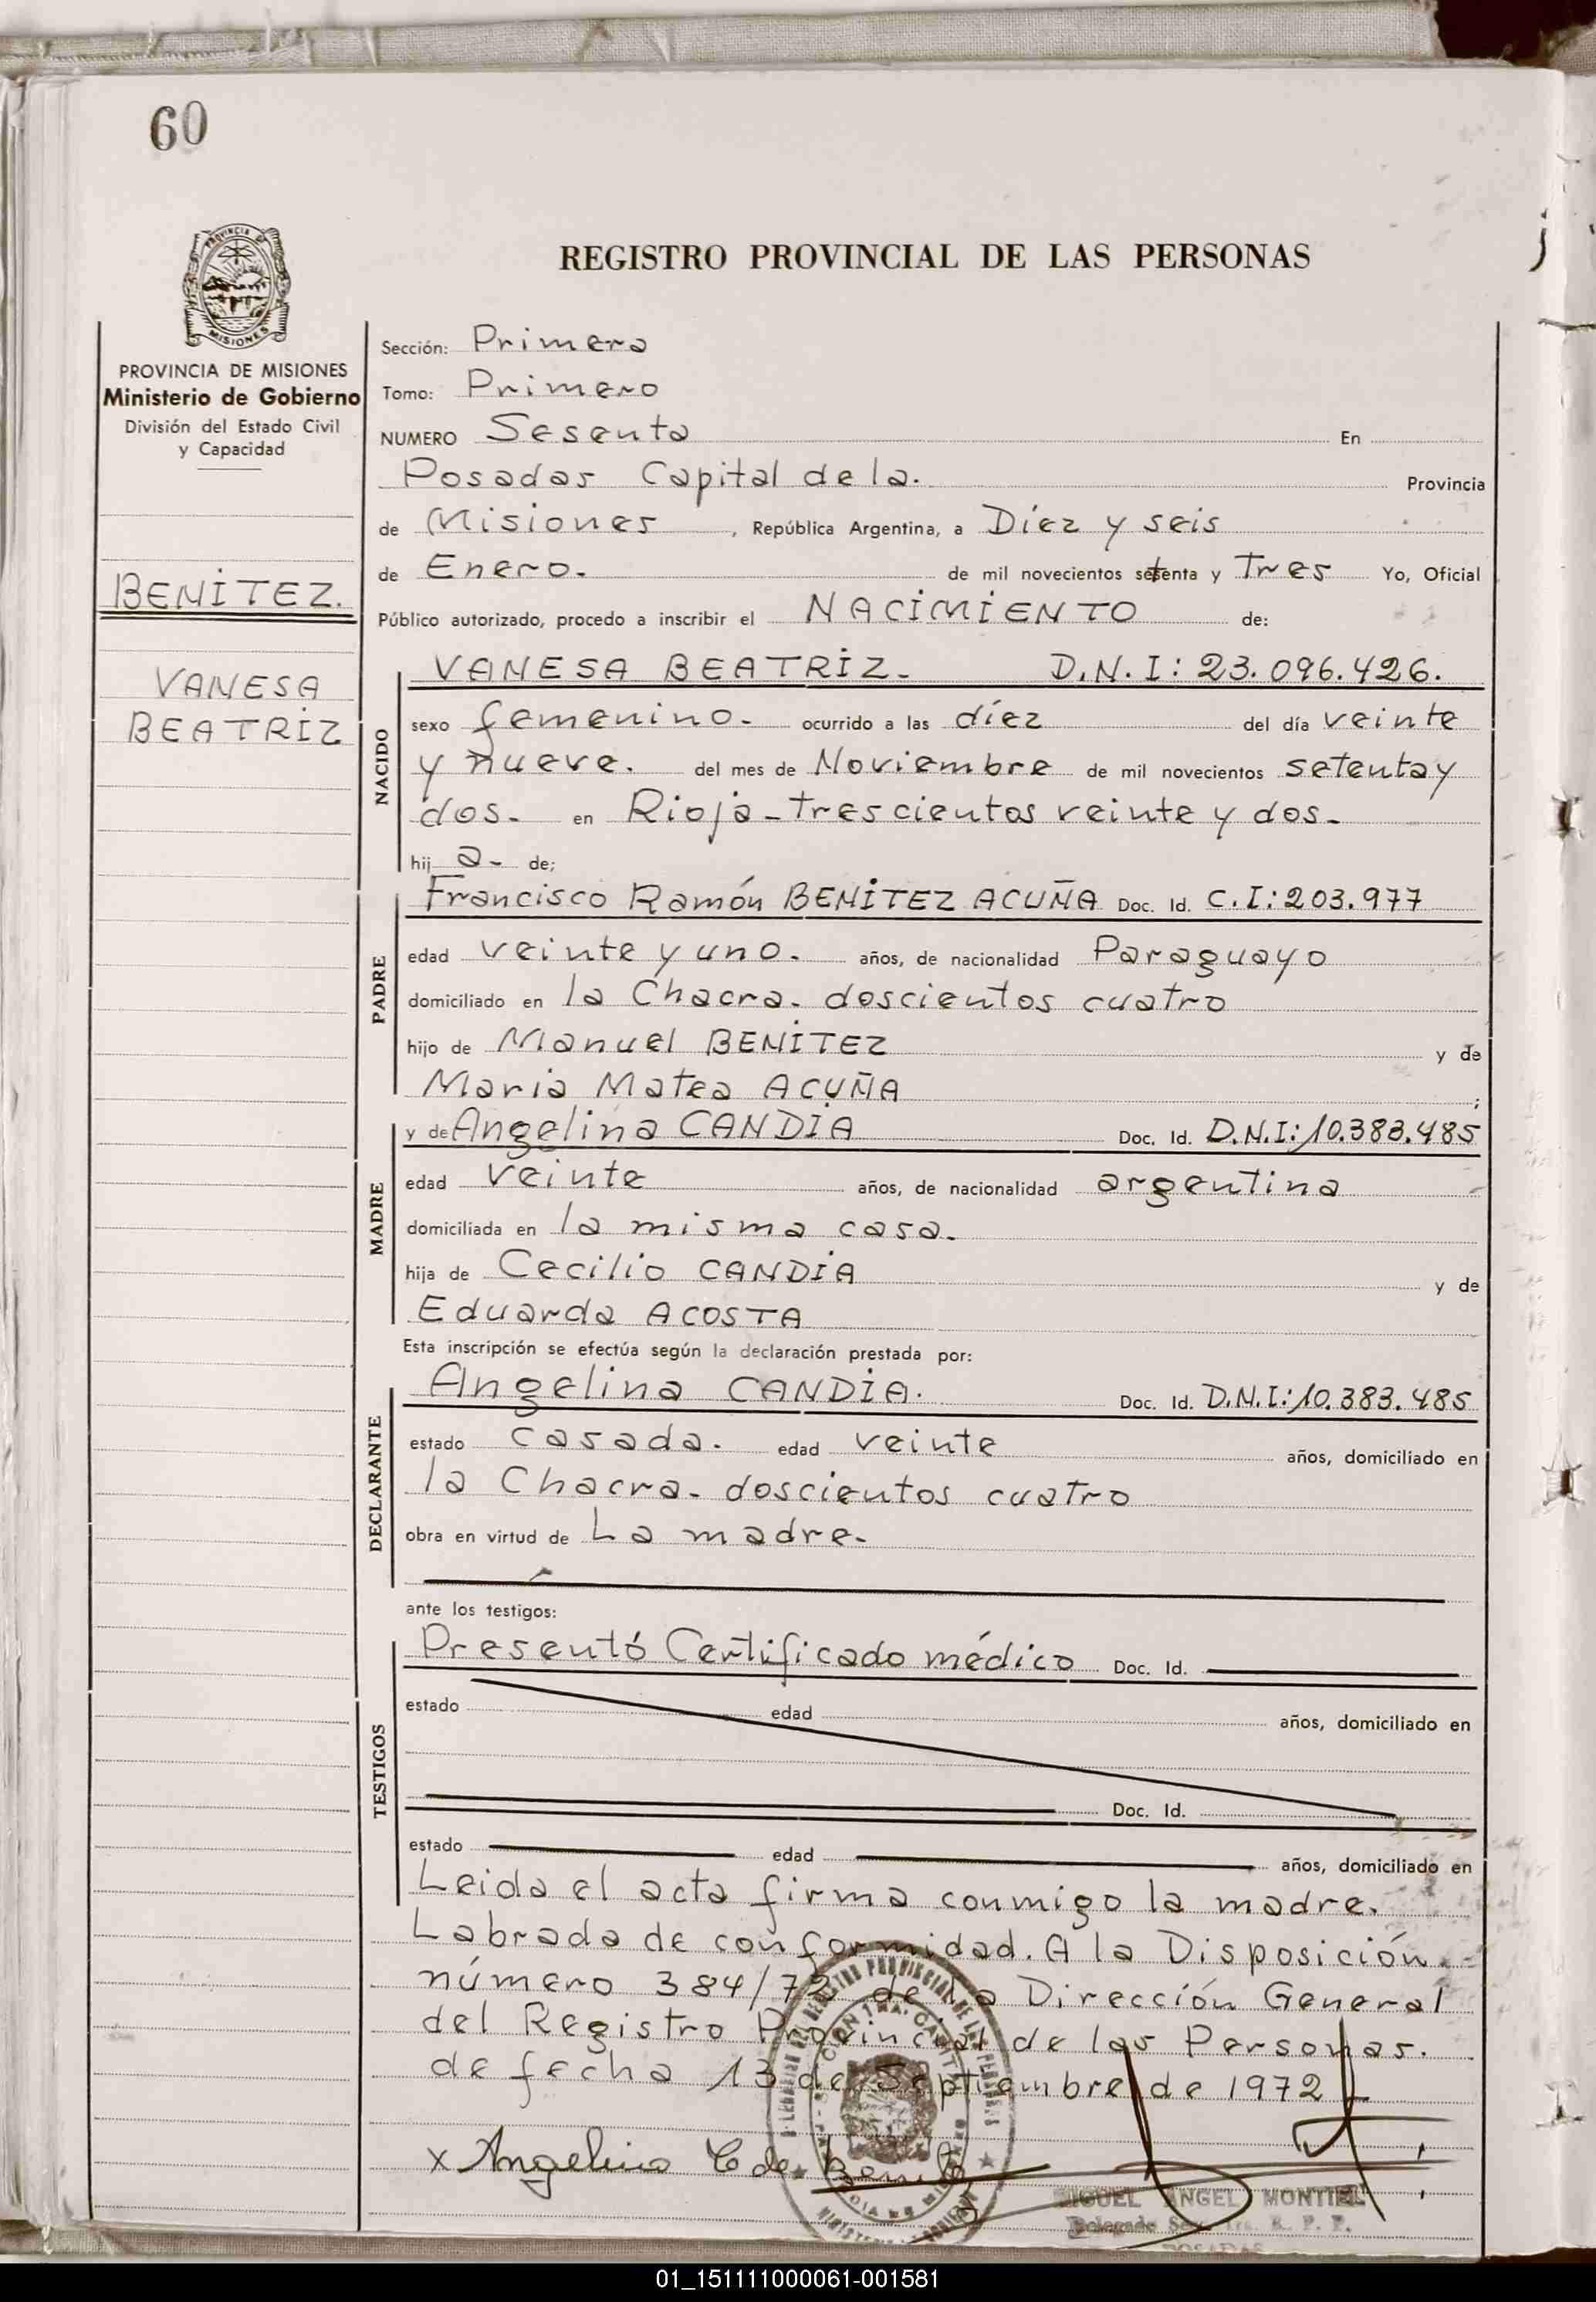 60
REGISTRO PROVINCIAL DE LAS PERSONAS
PROVINCIA
MISIONES
PROVINCIA DE MISIONES
Ministerio de Gobierno
División del Estado Civil
y Capacidad
BENÍTEZ.
VANESA
BEATRÍZ
Sección: Primera
Tomo: Primero
NUMERO Sesenta En
Posadas Capital de la. Provincia
de Misiones, República Argentina, a Díez y seis
de Enero. de mil novecientos setenta y Tres Yo, Oficial
Público autorizado, procedo a inscribir el NACIMIENTO de:
NACIDO
VANESA BEATRÍZ. D.N.I: 23.096.426.
sexo femenino. ocurrido a las díez del día veinte
y nueve. del mes de Noviembre de mil novecientos setenta y
dos. en Rioja - trescientos veinte y dos.
hij a. de;
PADRE
Francisco Ramón BENÍTEZ ACUÑA Doc. Id. C.I: 203.977
edad veinte y uno. años, de nacionalidad Paraguayo
domiciliado en la Chacra. doscientos cuatro
hijo de Manuel BENÍTEZ y de
Maria Matea ACUÑA ;
MADRE
y de Angelina CANDIA Doc. Id. D.N.I: 10.383.485
edad veinte años, de nacionalidad argentina
domiciliada en la misma casa.
hija de Cecilio CANDIA y de
Eduarda ACOSTA
Esta inscripción se efectúa según la declaración prestada por:
DECLARANTE
Angelina CANDIA. Doc. Id. D.N.I: 10.383.485
estado casada. edad veinte años, domiciliado en
la Chacra. doscientos cuatro
obra en virtud de La madre.
ante los testigos:
TESTIGOS
Presentó Certificado médico Doc. Id.
estado edad años, domiciliado en
Doc. Id.
estado edad años, domiciliado en
Leida el acta firma conmigo la madre.
Labrada de conformidad. A la Disposición
número 384/72 de la Dirección General
del Registro Provincial de las Personas.
de fecha 13 de Septiembre de 1972
x Angelina C de
MIGUEL ANGEL MONTIEL
Delegado R. P. P.
POSADAS
01_151111000061-001581